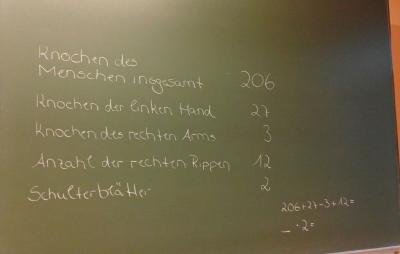 Knochen des
Menschen insgesamt 206
Knochen der linken Hand 27
Knochen des rechten Arms 3
Anzahl der rechten Rippen 12
Schulterblätter 2
206+27-3+12=
_ · 2=